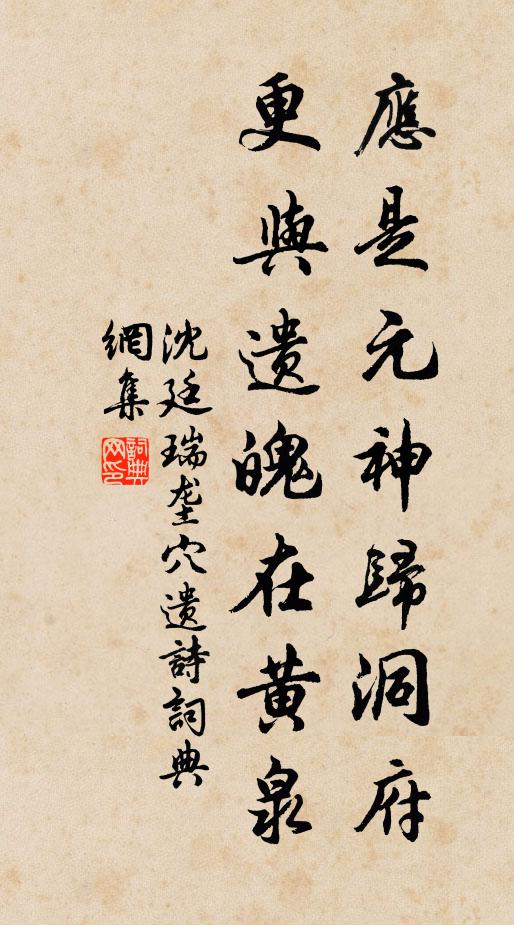 應是元神歸洞府
更與遺魄在黃泉
沈廷瑞壟穴遺詩詞典
網集
詞典
网印